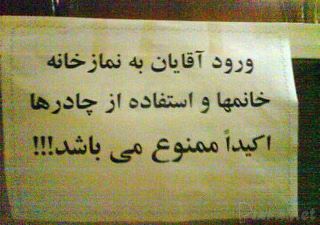 ورود آقایان به نمازخانه
خانمها و استفاده از چادرها
اکیداً ممنوع می باشد!!!